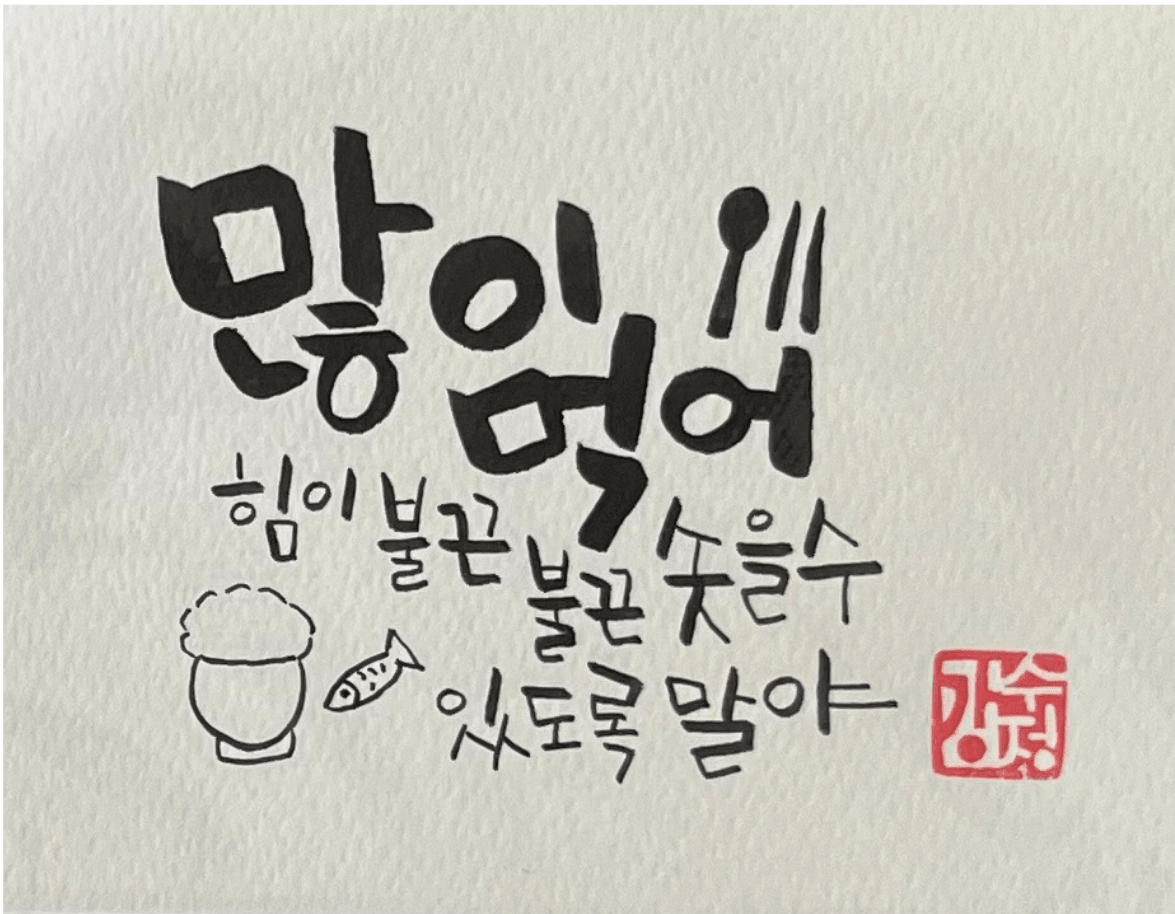 많이
먹어
힘이 불끈
불끈 솟을수
있도록 말야
강수정